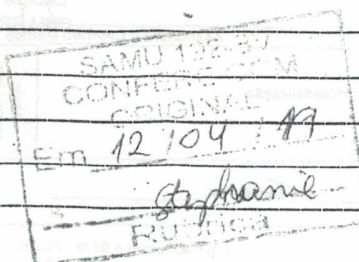 SAMU 192-
CONFERE COM
ORIGINAL
Em 12 / 04 / 17
Stephanie
Rubrica